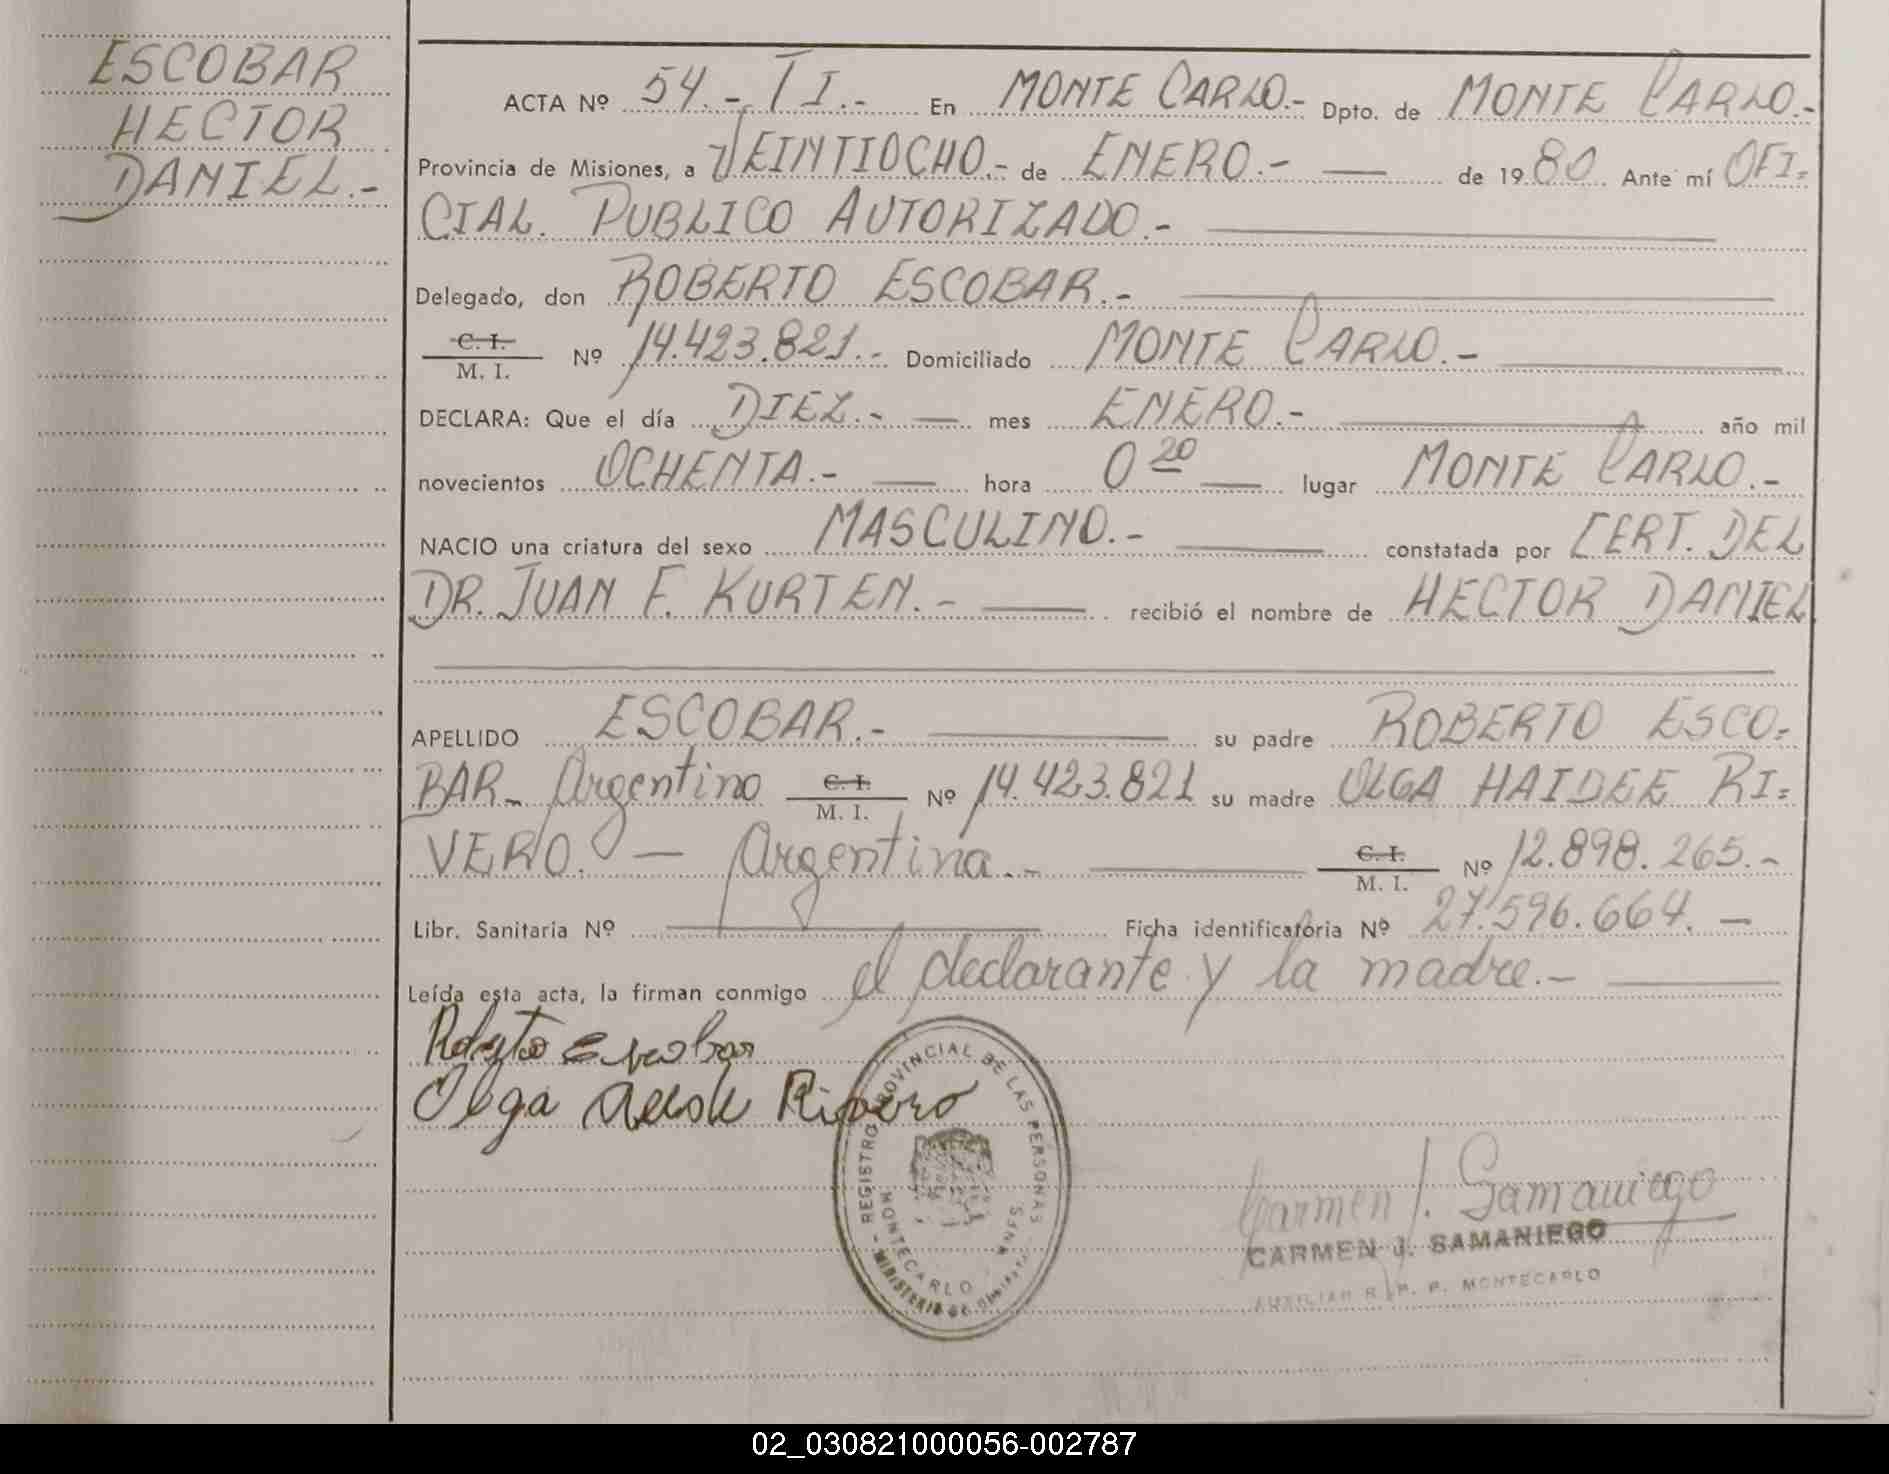 ESCOBAR
HECTOR
DANIEL.-
ACTA Nº 54.- T I.- En MONTE CARLO.- Dpto. de MONTE CARLO.-
Provincia de Misiones, a VEINTIOCHO.- de ENERO.- — de 1980 Ante mí OFI=
CIAL. PUBLICO AUTORIZADO.-
Delegado, don ROBERTO ESCOBAR.-
C. I.
M. I. Nº 14.423.821.- Domiciliado MONTE CARLO.-
DECLARA: Que el día DIEZ.- — mes ENERO.- año mil
novecientos OCHENTA.- — hora 0 20 — lugar MONTE CARLO.-
NACIO una criatura del sexo MASCULINO.- — constatada por CERT. DEL
DR. JUAN F. KURTEN.- — recibió el nombre de HECTOR DANIEL
APELLIDO ESCOBAR.- — su padre ROBERTO ESCO=
BAR- Argentino C. I. M. I. Nº 14.423.821 su madre OLGA HAIDEE RI=
VERO. — Argentina.- — C. I. M. I. Nº 12.898.265.-
Libr. Sanitaria Nº — Ficha identificatória Nº 27.596.664. —
Leída esta acta, la firman conmigo el declarante y la madre.-
Roberto Escobar
Olga Rivero
REGISTRO PROVINCIAL DE LAS PERSONAS
MONTECARLO MNES.
MINISTERIO DE
Carmen J. Samaniego
CARMEN J. SAMANIEGO
AUXILIAR R. P. P. MONTECARLO
02_030821000056-002787